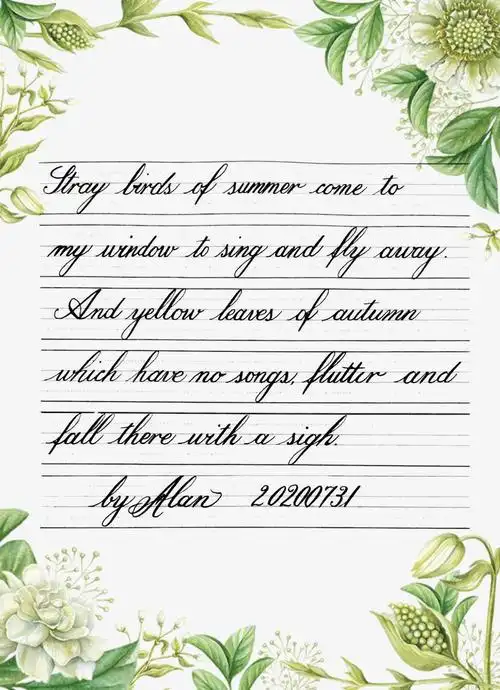 Stray birds of summer come to
my window to sing and fly away.
And yellow leaves of autumn
which have no songs, flutter and
fall there with a sigh.
by Alan 20200731